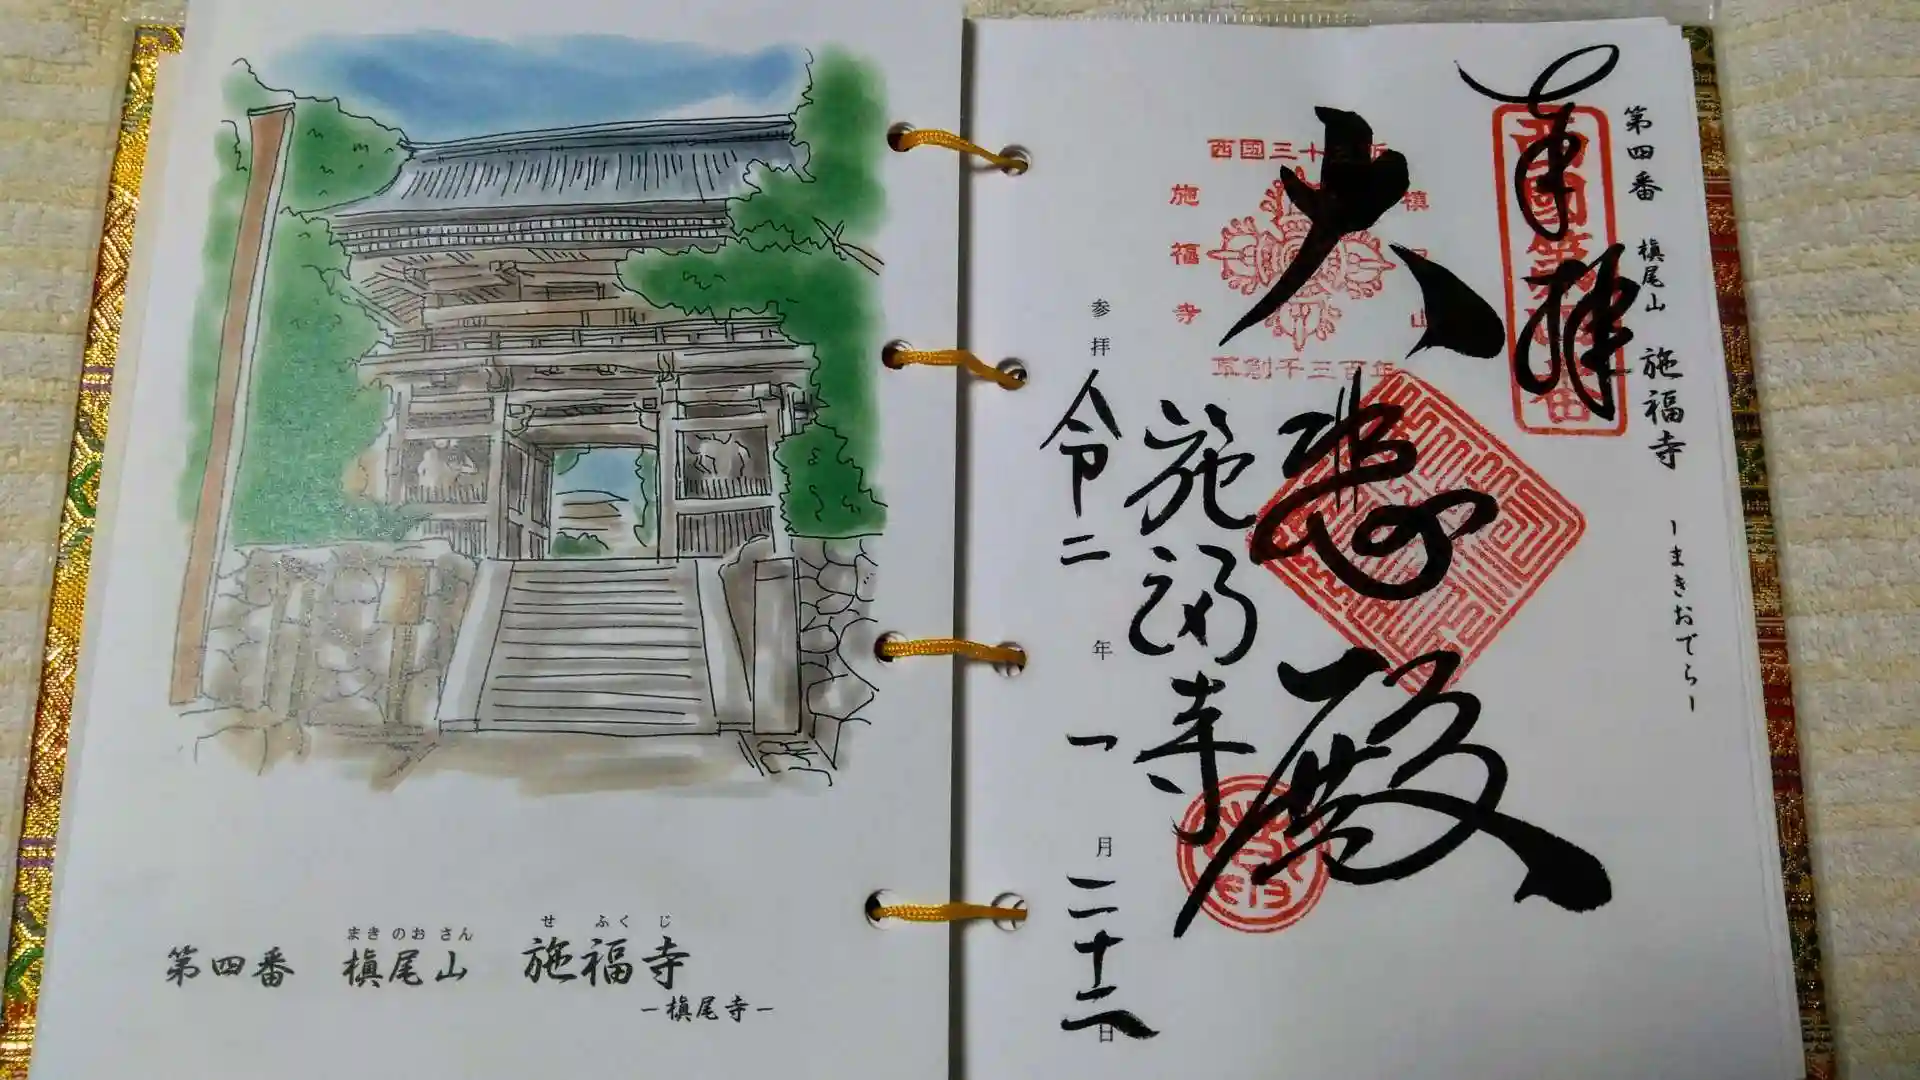 せ ふく じ
まきのおさん
第四番 槇尾山 施福寺
ー槇尾寺ー
第四番 槇尾山 施福寺 ーまきおでらー
奉拝
西国第四番
西国三十三所
槙尾山
施福寺
草創千三百年
大悲殿
施福寺
参拝 令二年一月二十二日